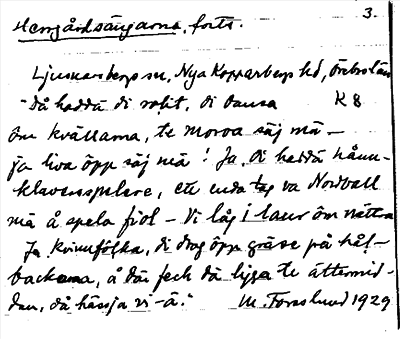 3.
Herrgårdsängarna, forts.
Ljusnarsbergs sn, Nya Kopparbergs hd, Örebro län
"Då haddä di rolit, di dansa K 8
öm kvällarna, te moroa säj mä –
ja liva öpp säj mä! Ja, di haddä nånn-
klaversspelare, ett enda tag va Nordvall
mä å spela fiol – Vi låg i laur öm nättra
Ja, kvinnfôlka, di drog öpp gräse på hål-
backarna, å där feck dä ligga te ättermid-
dan, då hässja vi -ä." M. Forslund 1929